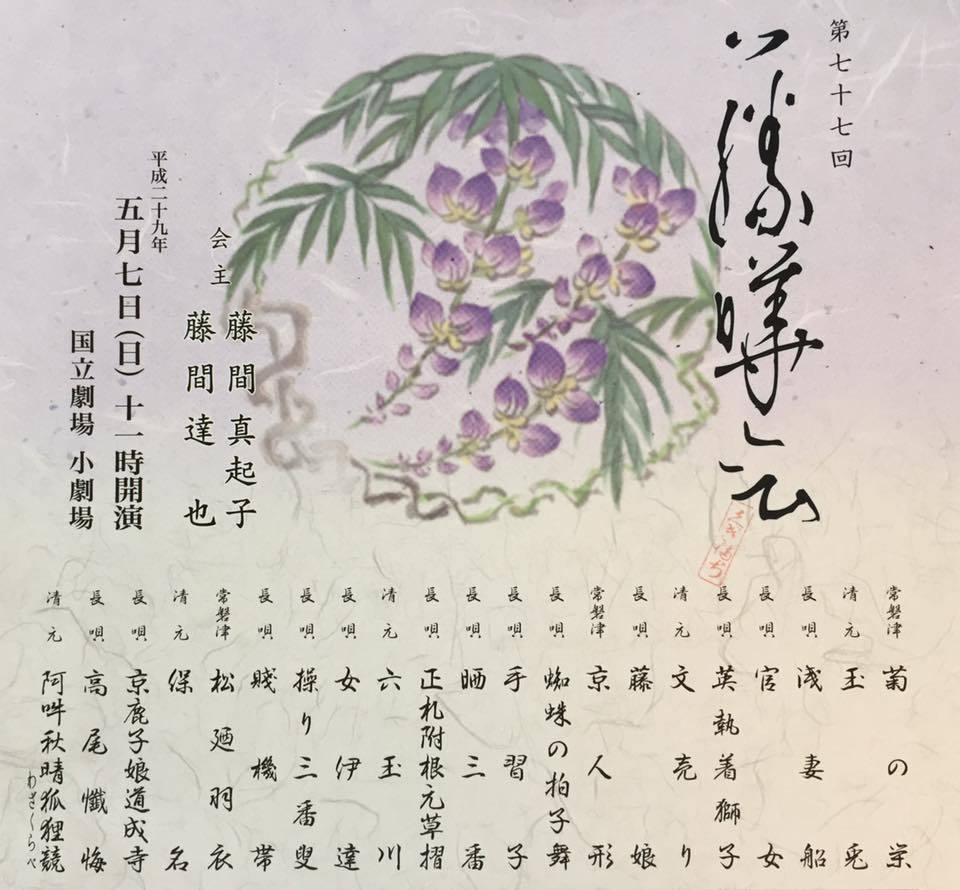 第七十七回
会主
藤間真起子
藤間達也
平成二十九年
五月七日(日)十一時開演
国立劇場 小劇場
常磐津 菊の栄
清元 玉兎
長唄 浅妻船
長唄 官女
長唄 英執着獅子
清元 文売り
長唄 藤娘
常磐津 京人形
長唄 蜘蛛の拍子舞
長唄 手習子
長唄 晒三番
長唄 正札附根元草摺
清元 六玉川
長唄 女伊達
長唄 操り三番叟
長唄 賤機帯
常磐津 松廼羽衣
清元 保名
長唄 京鹿子娘道成寺
長唄 高尾懺悔
清元 阿吽秋晴狐狸競
わざくらべ